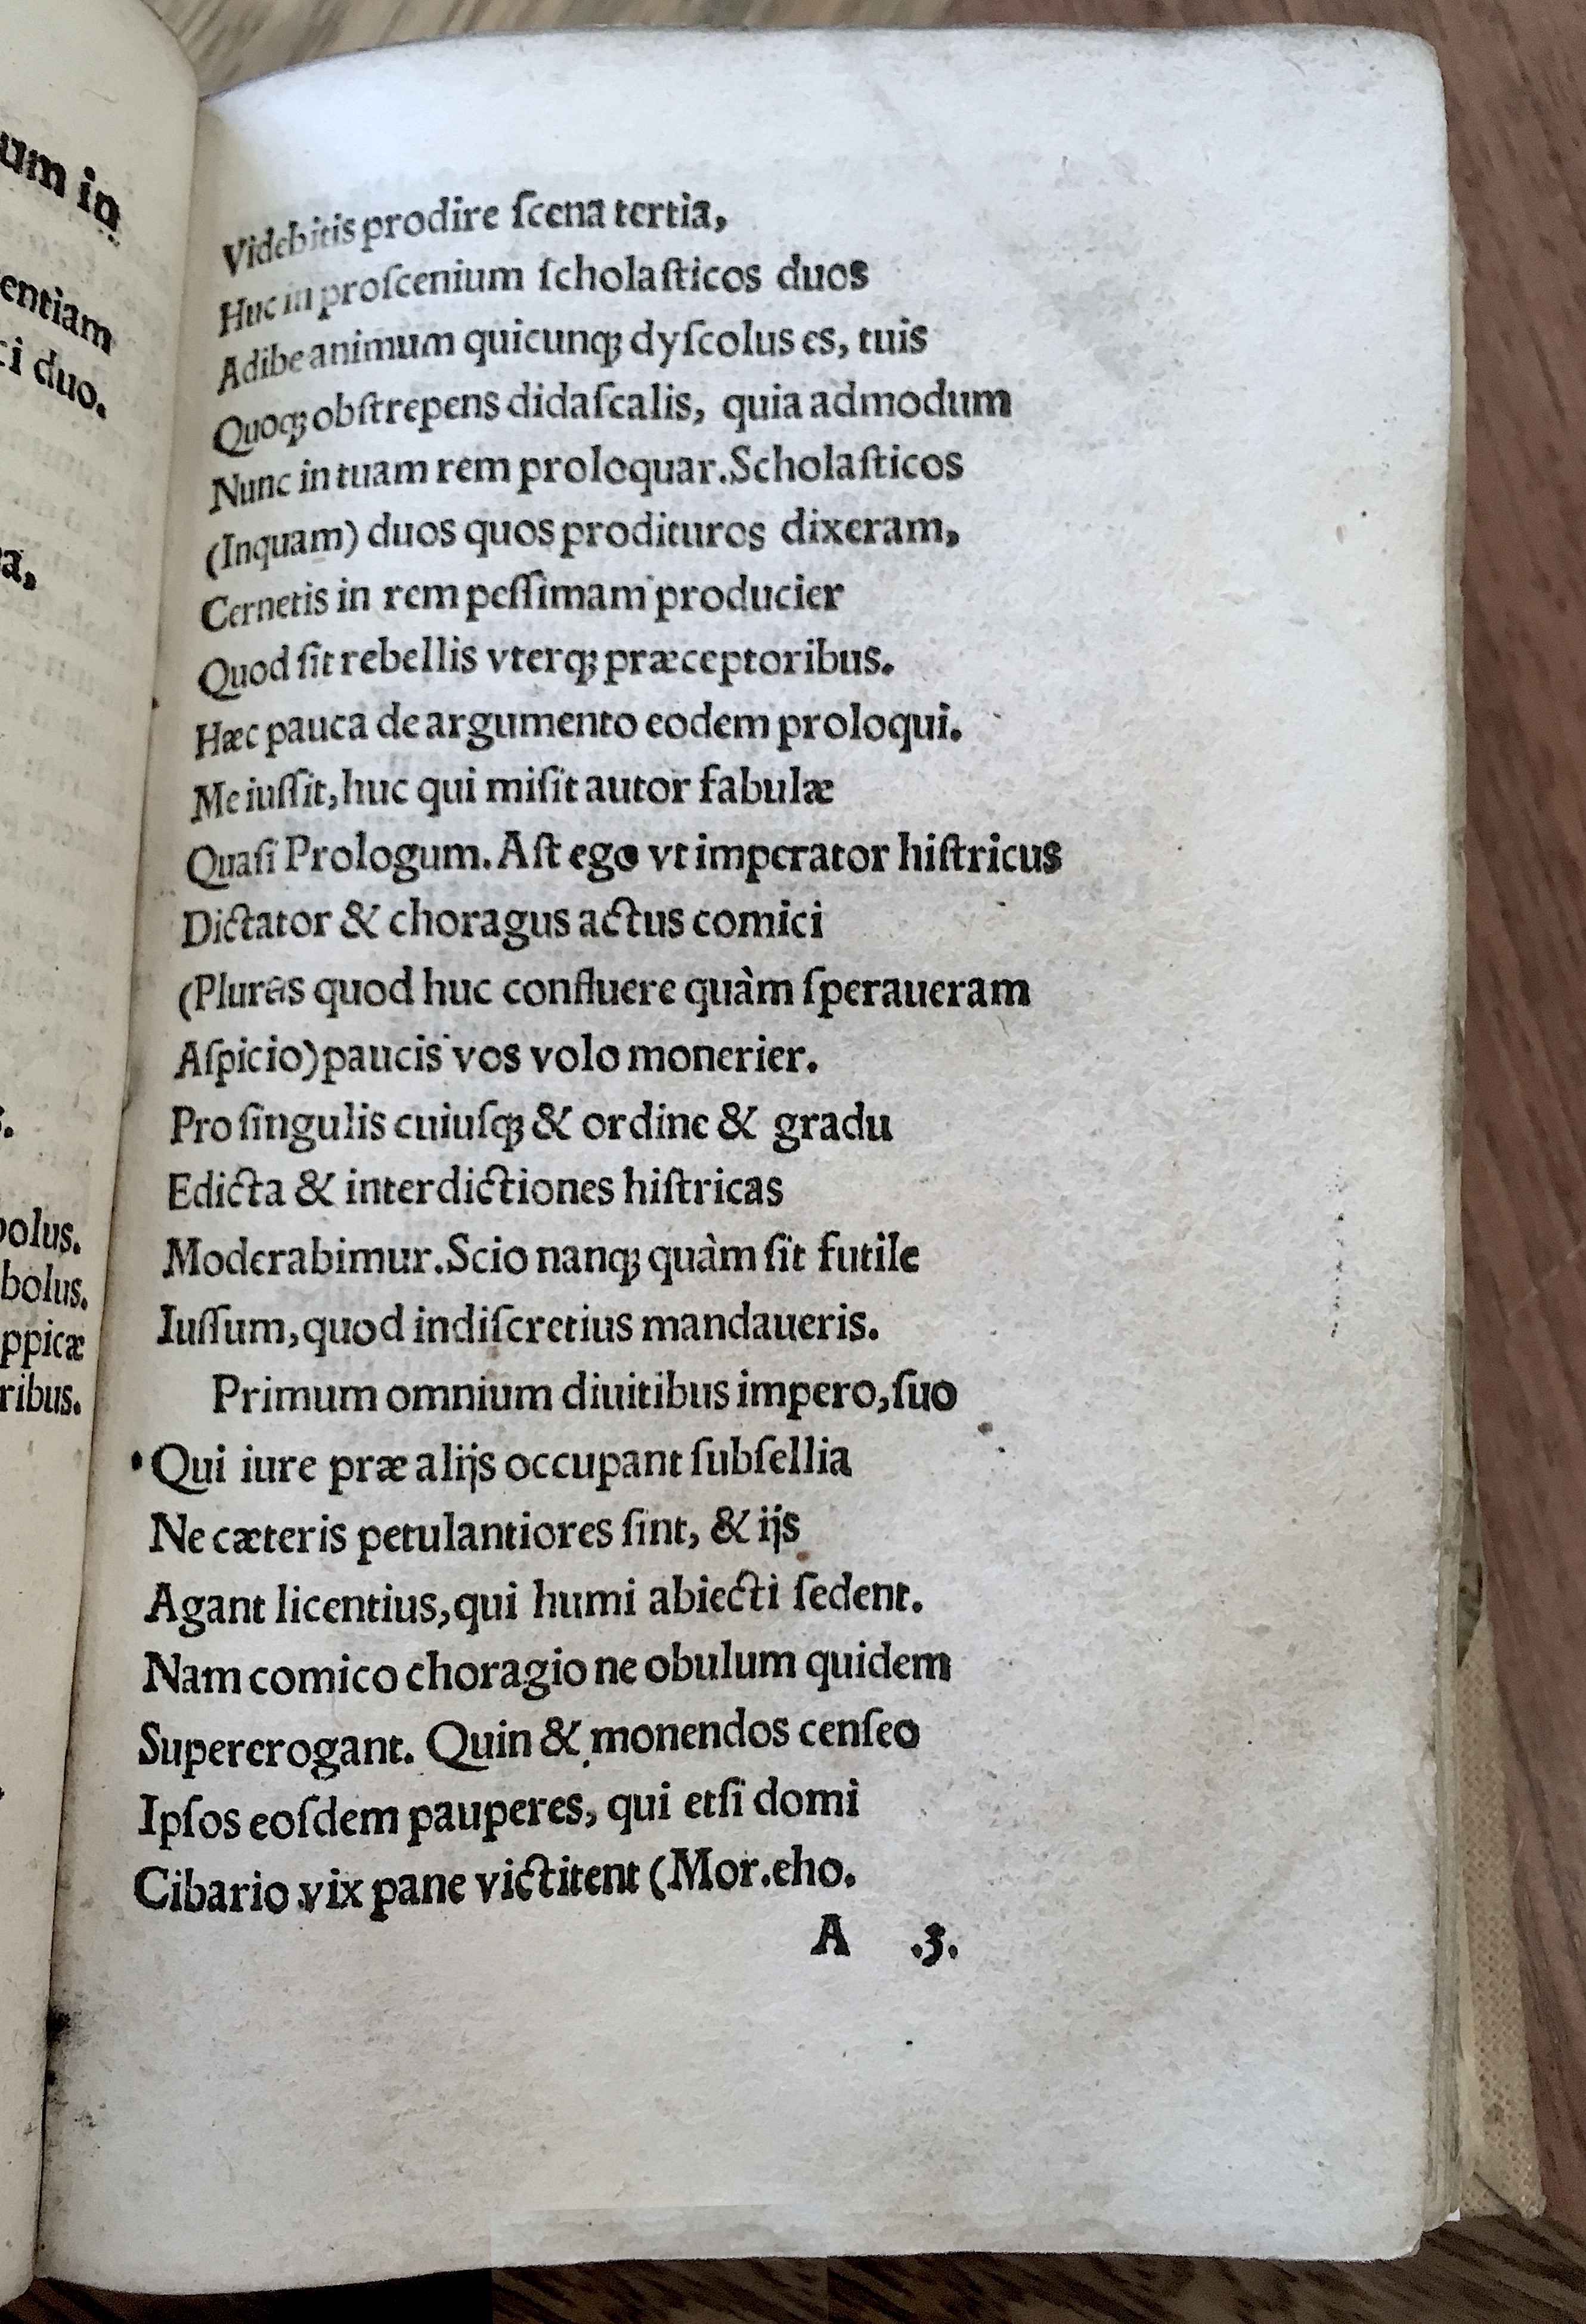 um in
entiam
ci duo.
a,
s.
bolus.
bolus.
ppicæ
ribus.
Videbitis prodire ſcena tertia,
Huc in proſcenium ſcholaſticos duos
Adibe animum quicunqꝫ dyſcolus es, tuis
Quoqꝫ obſtrepens didaſcalis, quia admodum
Nunc in tuam rem proloquar. Scholaſticos
(Inquam) duos quos prodituros dixeram,
Cernetis in rem peſſimam producier
Quod ſit rebellis vterqꝫ præceptoribus.
Hæc pauca de argumento eodem proloqui.
Me iuſſit, huc qui miſit autor fabulæ
Quaſi Prologum. Aſt ego vt imperator hiſtricus
Dictator & choragus actus comici
(Plures quod huc confluere quàm ſperaueram
Aſpicio) paucis vos volo monerier.
Pro ſingulis cuiuſqꝫ & ordine & gradu
Edicta & interdictiones hiſtricas
Moderabimur. Scio nanqꝫ quàm ſit futile
Iuſſum, quod indiſcretius mandaueris.
Primum omnium diuitibus impero, ſuo
Qui iure præ alijs occupant ſubſellia
Ne cæteris petulantiores ſint, & ijs
Agant licentius, qui humi abiecti ſedent.
Nam comico choragio ne obulum quidem
Supererogant. Quin & monendos cenſeo
Ipſos eoſdem pauperes, qui etſi domi
Cibario vix pane victitent (Mor. eho.
A .3.